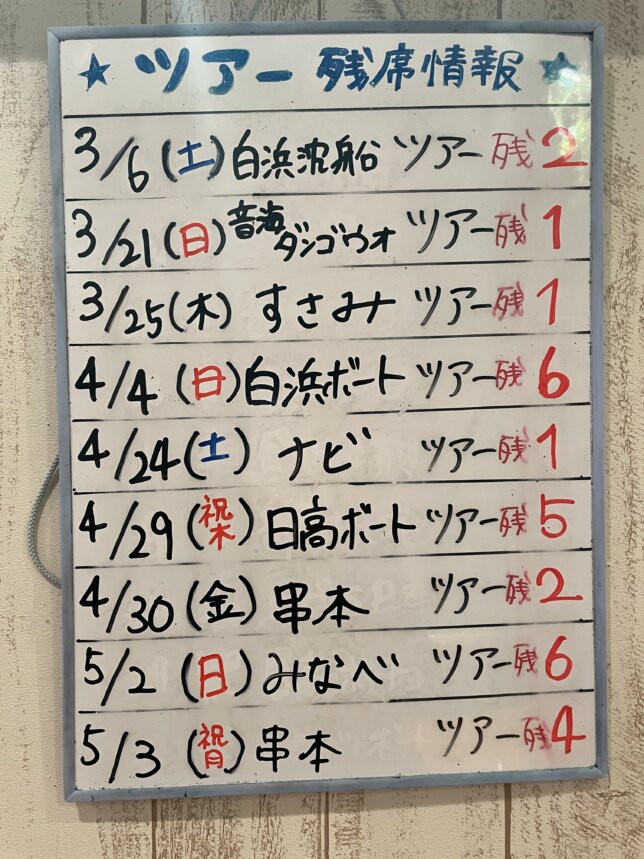 ★ ツアー 残席情報 ★
3/6(土)白浜沈船 ツアー 残2
3/21(日)音海ダンゴウオ ツアー残1
3/25(木)すさみ ツアー残1
4/4(日)白浜ボート ツアー残6
4/24(土)ナビ ツアー残1
4/29(祝木)日高ボート ツアー残5
4/30(金)串本 ツアー残2
5/2(日)みなべ ツアー残6
5/3(祝月)串本 ツアー残4